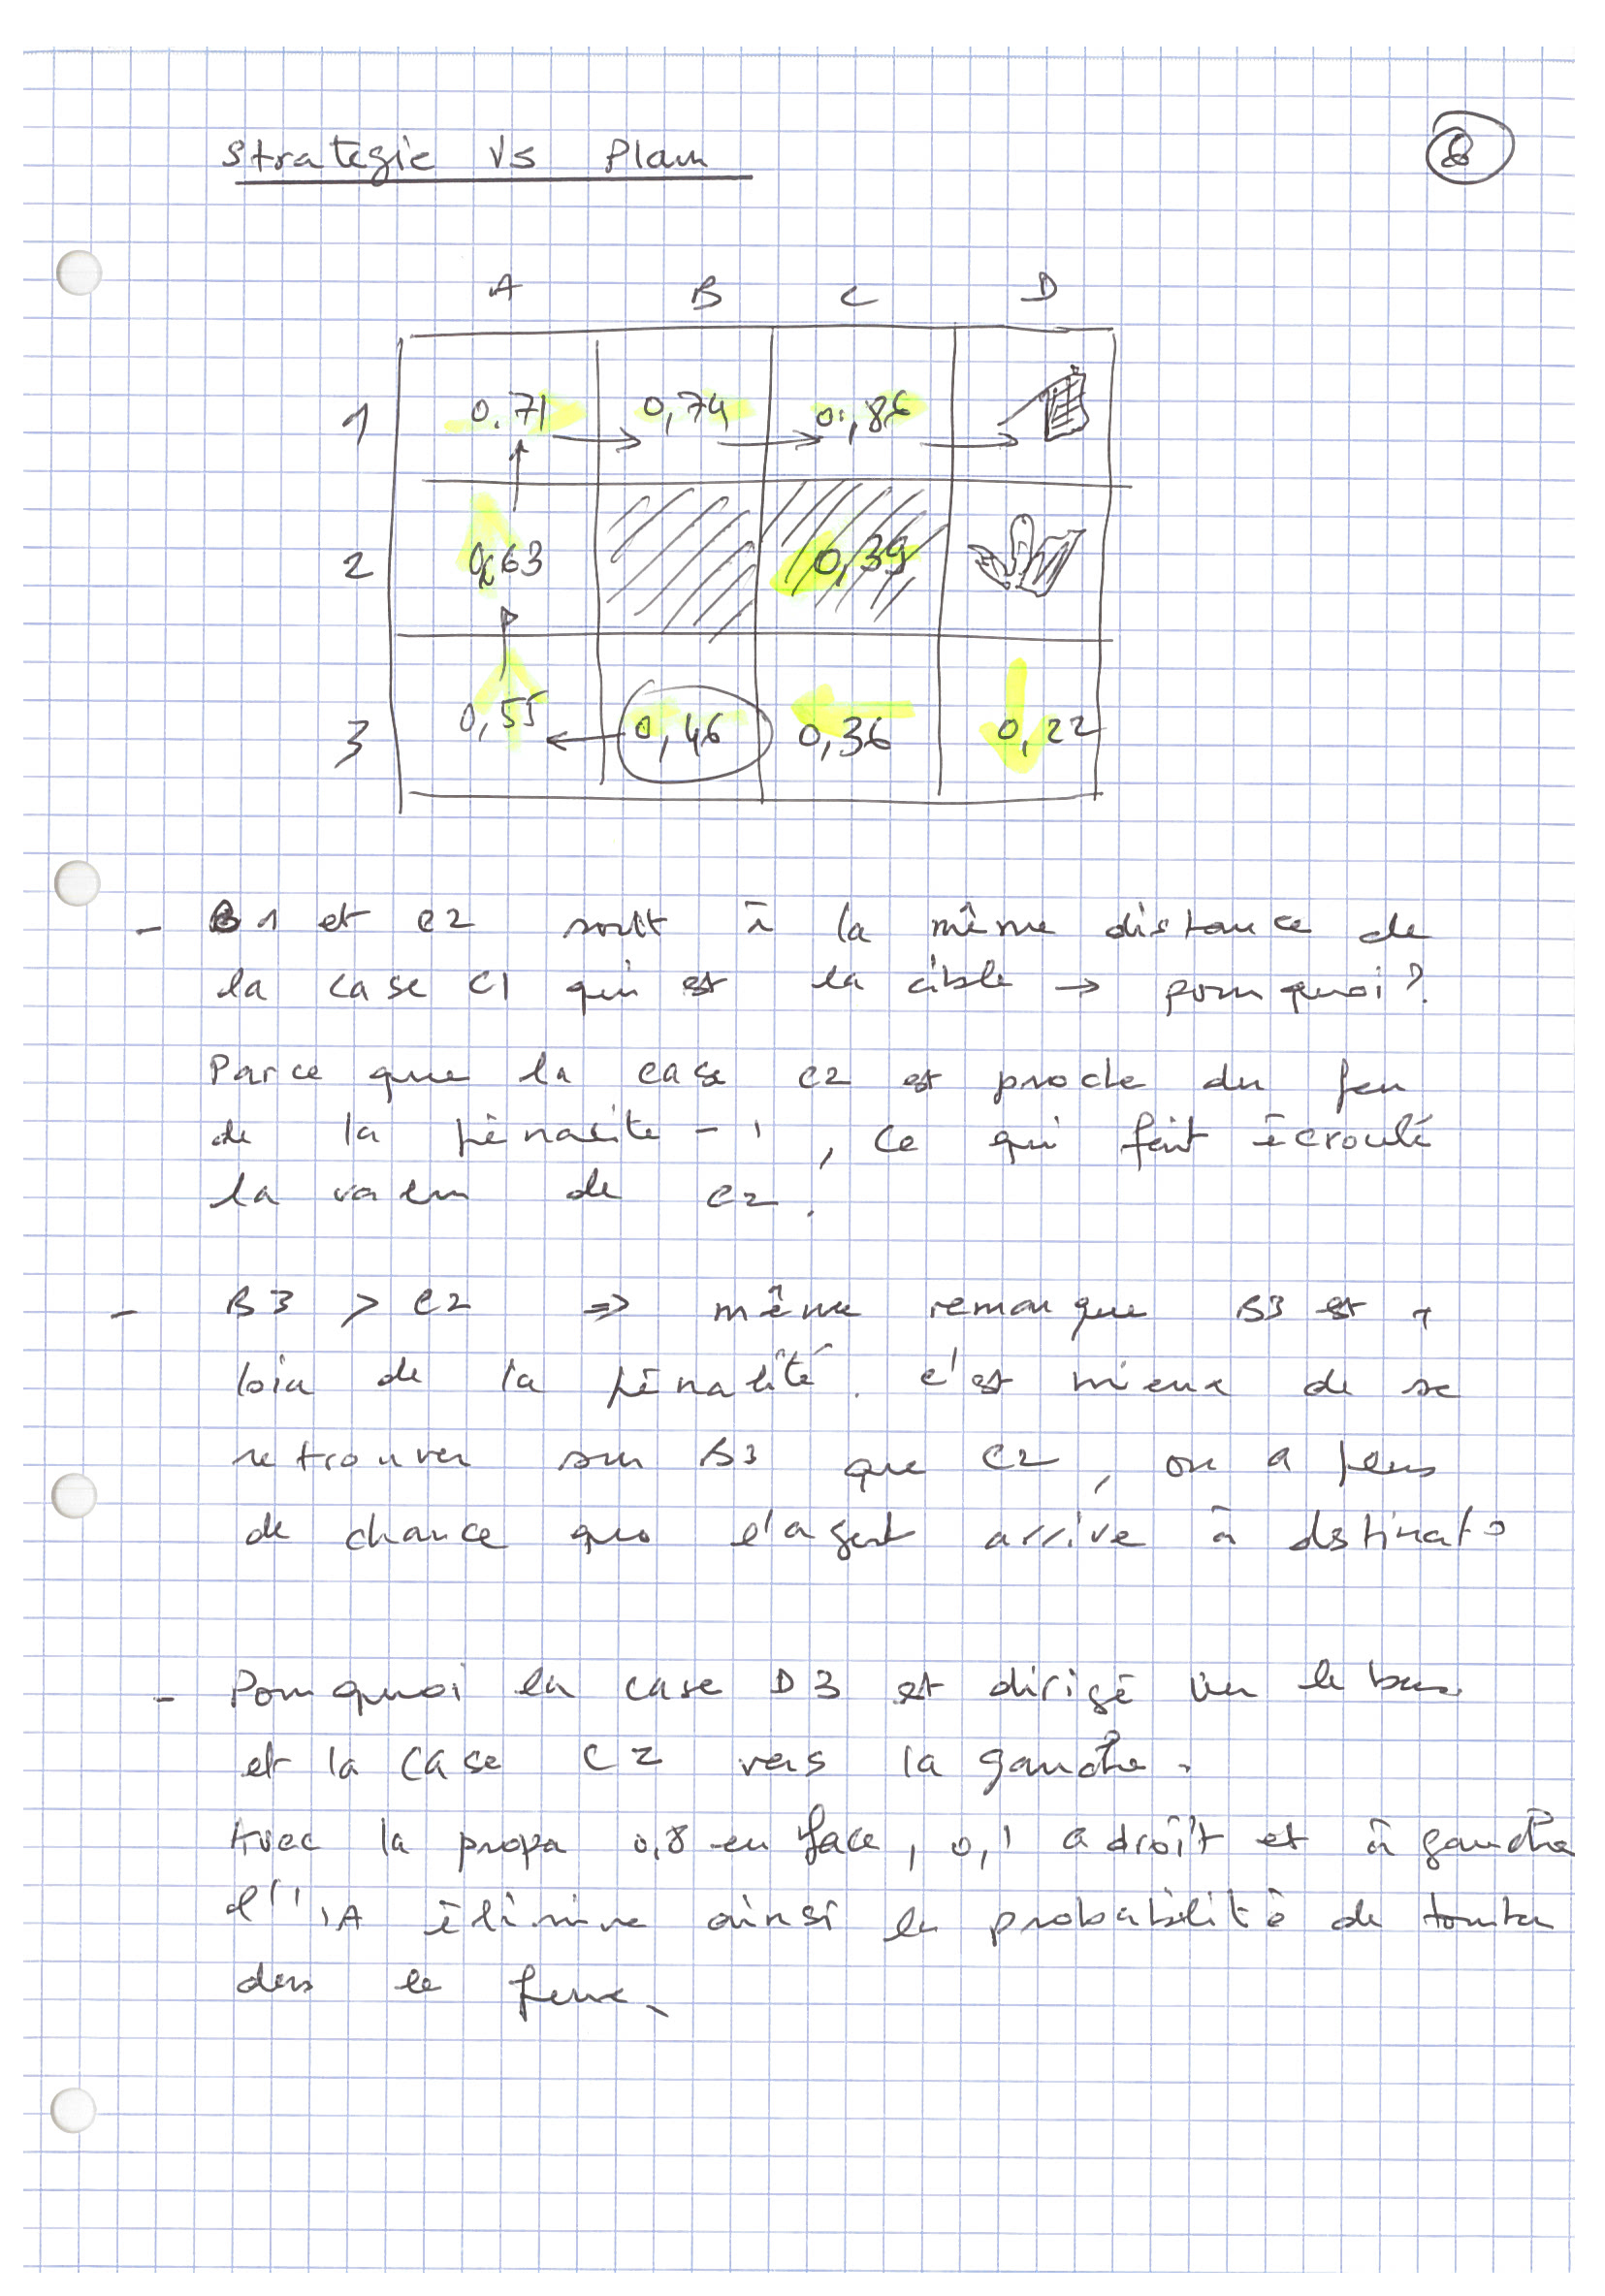 Strategie Vs Plan
8
A B C D
1 0.71 0,74 0,86
2 0,63 0,39
3 0,55 0,46 0,36 0,22
- B1 et C2 sont à la même distance de
la case C1 qui est la cible → pourquoi ?
Parce que la case C2 est proche du feu
de la pénalité -1, ce qui fait écroulé
la valeur de C2.
- B3 > C2 => même remarque B3 est +
loin de la pénalité. c'est mieux de se
retrouver sur B3 que C2, on a plus
de chance que l'agent arrive à dstinat°
- Pourquoi la case D3 est dirigé vers le bas
et la case C2 vers la gauche.
Avec la propa 0,8 en face, 0,1 a droit et à gauche
l'IA élimine ainsi la probabilité de tomber
dans le feux.